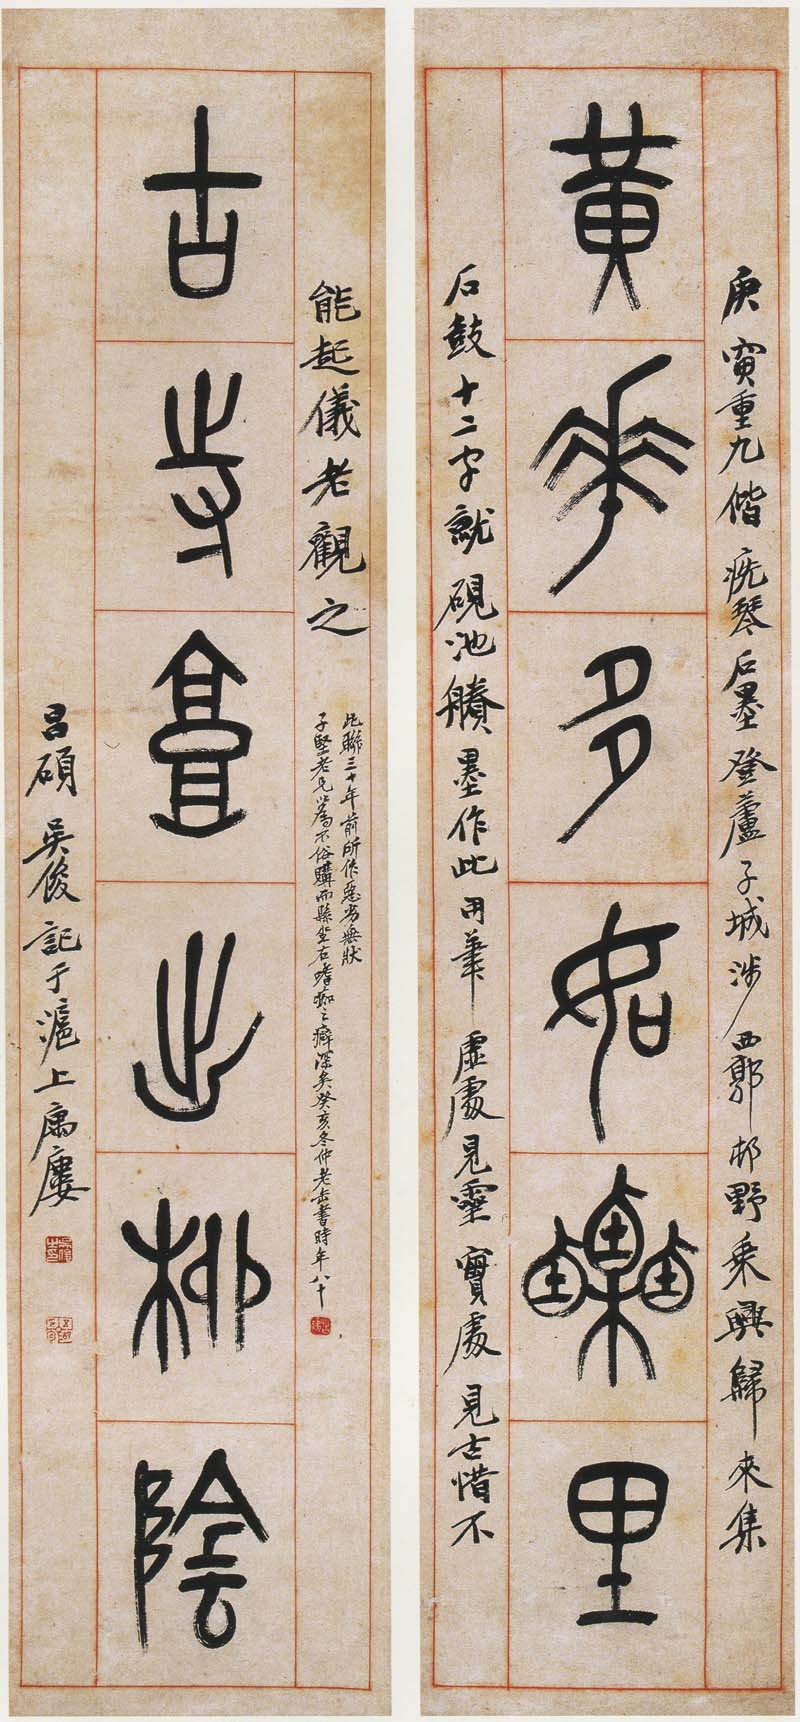 黃華多如栗里
庚寅重九偕疣琴石墨登蘆子城涉西郭邨野乘興歸來集
石鼓十二字就硯池賸墨作此用筆虛處見靈實處見古惜不
古寺出柳陰
能起儀老觀之
此聯三十年前所作惡劣無狀
子堅老兄以爲不俗購而縣坐右嗜痂之癖深矣癸亥冬仲老缶書時年八十
昌碩吳俊記于滬上寓廔